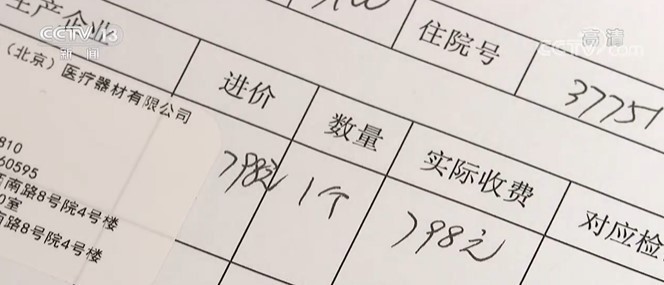 CCTV 13
新闻
高清
CCTV.com
生产企业
住院号
37751
（北京）医疗器材有限公司
进价
数量
实际收费
对应检
810
60595
798元
1个
798元
南路8号院4号楼
0室
路8号院4号楼